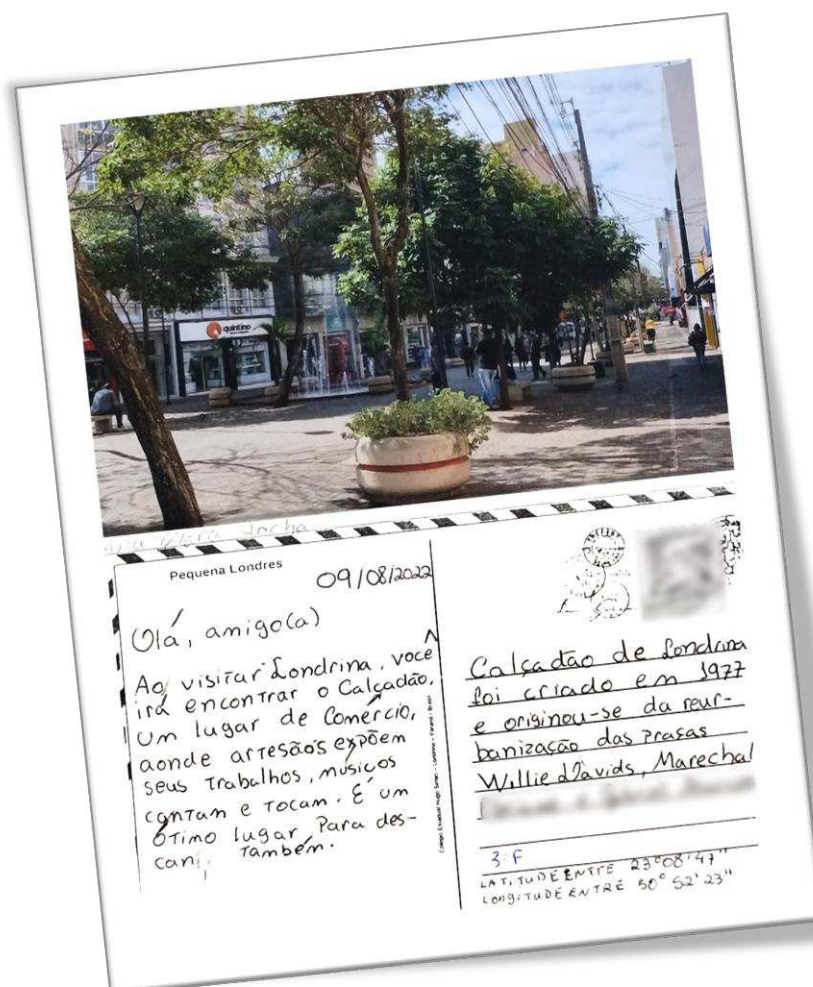 quintino
Pequena Londres
09/08/2022
Olá, amigo(a)
Ao visitar Londrina, você
irá encontrar o Calçadão,
um lugar de Comércio,
aonde artesãos expõem
seus trabalhos, músicos
cantam e tocam. É um
ótimo lugar Para des-
também.
Calçadão de Londrina
foi criado em 1977
e originou-se da reur-
banização das Prasas
Willie dDavids, Marechal
3: F
LATITUDE ENTRE 23°08'47"
LONGITUDE ENTRE 50° 52' 23"